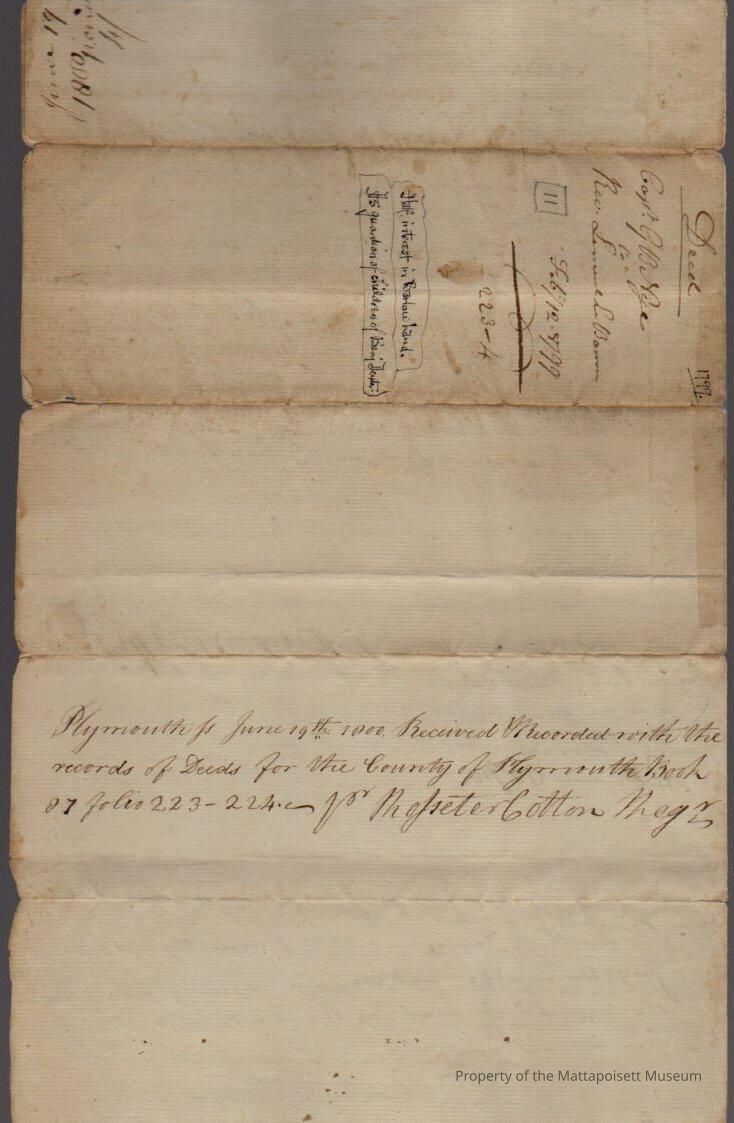 June 19
1800
Deed
1799
Capt. G. B. Nye
to
Rev. Lemuel LeBaron
11
Feby 12. 1799
223-4
Half interest in Barlow Land.
As guardian of children of Benj Dexter
Plymouth ss June 19th 1800. Received & Recorded with the
records of Deeds for the County of Plymouth Book
87 folio 223-224. pr Rosseter Cotton Regr
Property of the Mattapoisett Museum